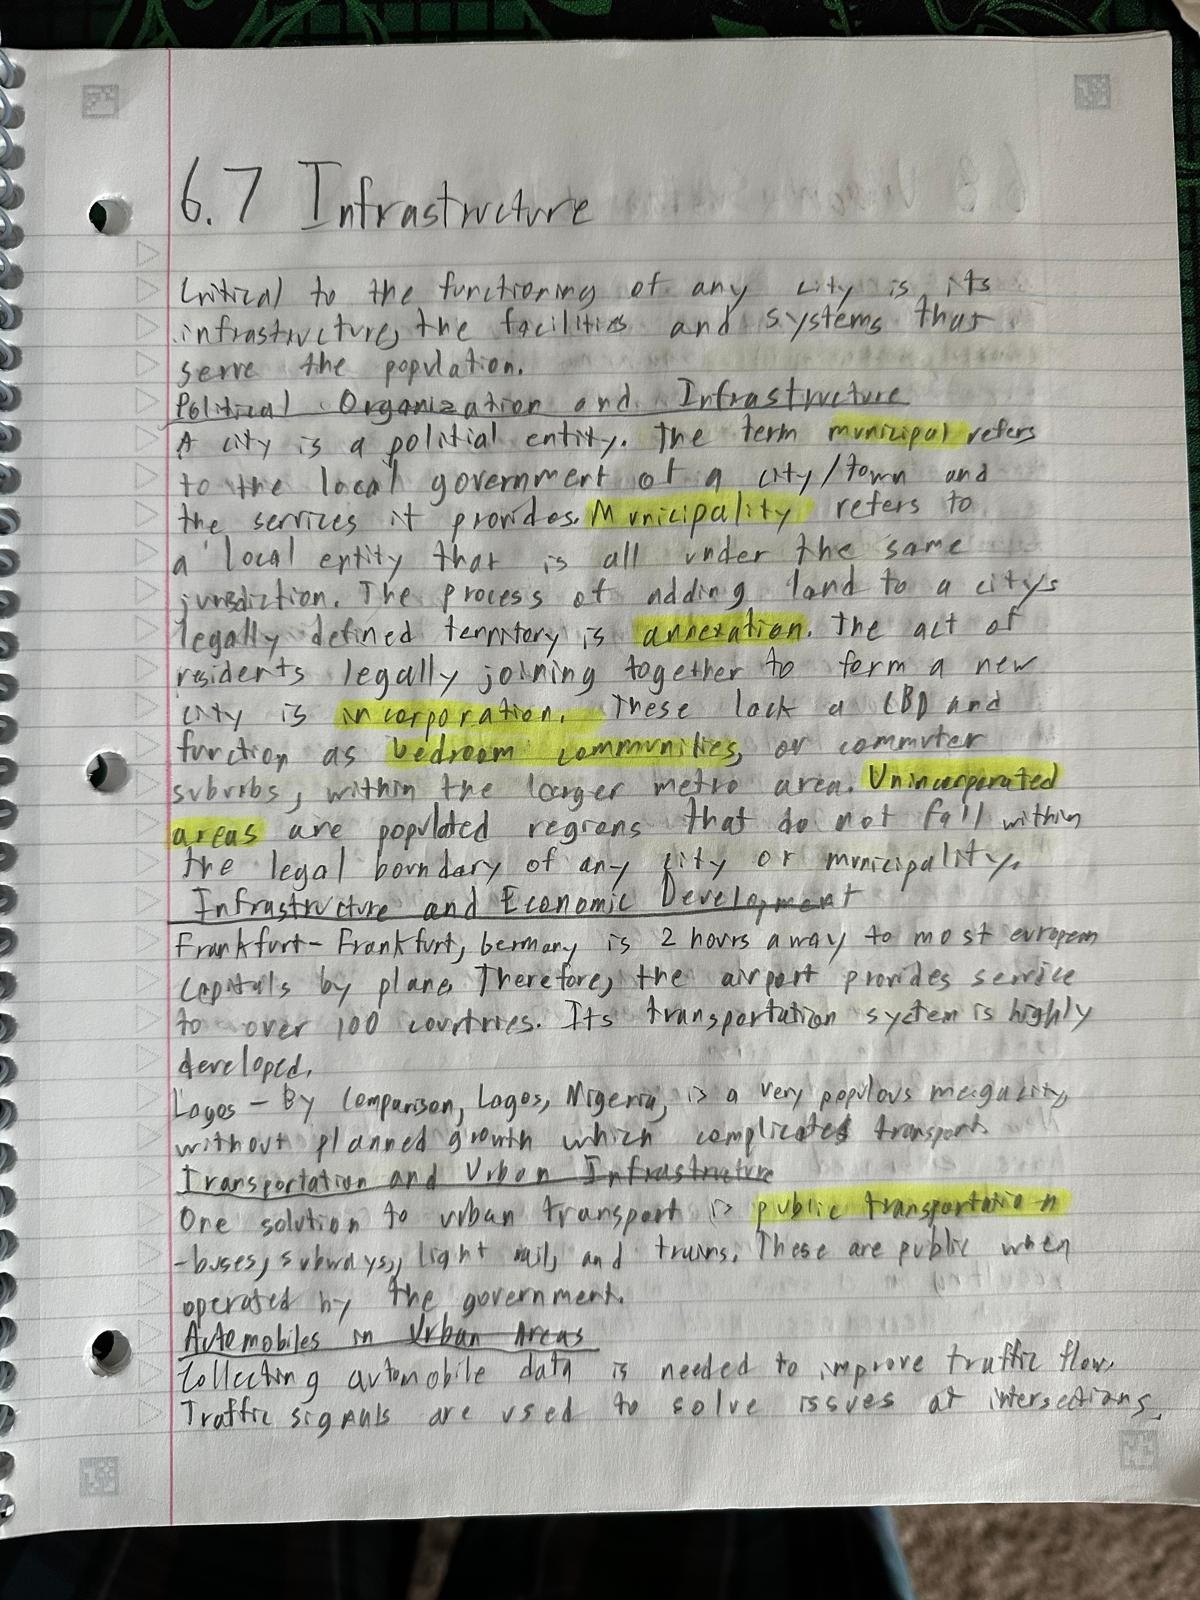 6.7 Infrastructure
Critical to the functioning of any city is its
infrastructure, the facilities and systems that
serve the population.
Political Organization and Infrastructure
A city is a politial entity. The term municipal refers
to the local government of a city/town and
the services it provides. Municipality refers to
a local entity that is all under the same
jursdiction. The process of adding land to a citys
legally defined territory is annexation. The act of
residents legally joining together to form a new
city is incorporation. These lack a CBD and
function as bedroom communities, or commuter
suburbs, within the larger metro area. Unincorporated
areas are populated regions that do not fall within
the legal boundary of any city or municipality.
Infrastructure and Economic Development
Frankfurt- Frankfurt, Germany is 2 hours away to most european
capitals by plane. Therefore, the airport provides service
to over 100 countries. Its transportation system is highly
developed.
Lagos - By comparison, Lagos, Nigeria, is a very populous megacity,
without planned growth which complicates transport.
Transportation and Urban Infrastructure
One solution to urban transport is public transportation
-buses, subways, light rail, and trains. These are public when
operated by the government.
Automobiles in Urban Areas
Collecting automobile data is needed to improve traffic flow.
Traffic signals are used to solve issues at intersections.